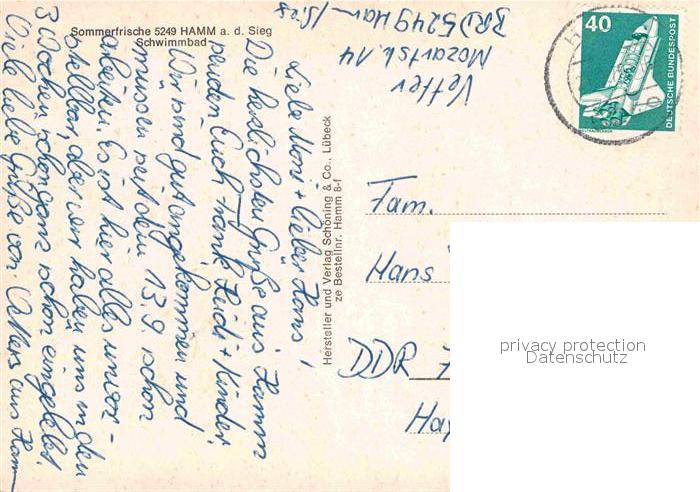 Sommerfrische 5249 HAMM a. d. Sieg
Schwimmbad
Liebe Mosi + lieber Hans!
Die herzlichsten Grüße aus Hamm
senden Euch Frank, Rudi + Kinder.
Wir sind gut angekommen und
müssen seit dem 13.9. schon
arbeiten. Es ist hier alles unvor-
stellbar, aber wir haben uns in den
3 Wochen schon ganz schön eingelebt.
Viele liebe Grüße von aus Hamm
Vetter
Mozartstr. 14
BRD 5249 Hamm/Sieg
Hersteller und Verlag Schöning & Co., Lübeck
ze Bestellnr. Hamm 8-f
40
DEUTSCHE BUNDESPOST
Fam.
Hans
DDR
privacy protection
Datenschutz